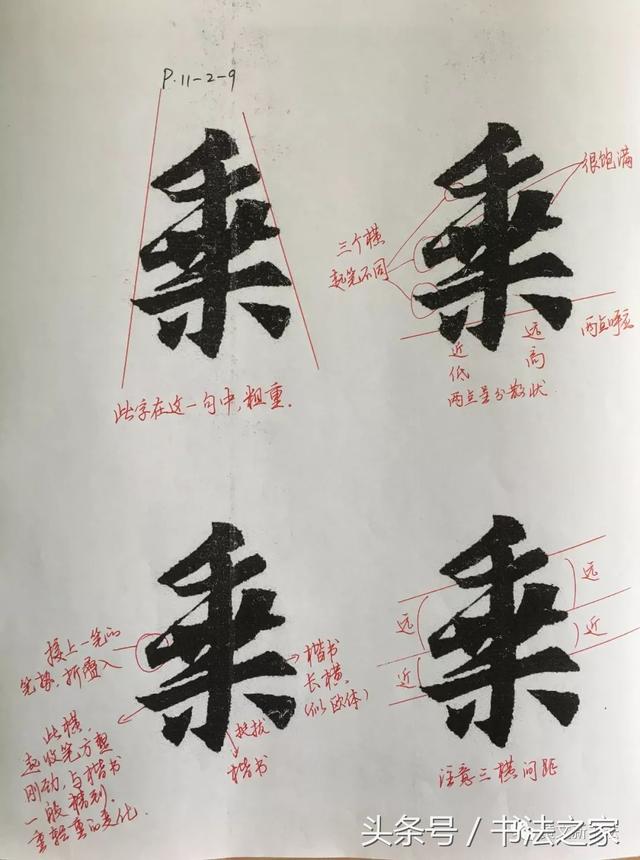 P.11-2-9
乘
此字在这一句中,粗重.
乘
很饱满
三个横
起笔不同
两点呼应
近
低
远
高
两点呈分散状
乘
接上一笔的
笔势,折叠入
楷书
长横.
(似欧体)
挺拔
楷书
此横.
起收笔方整
刚劲,与楷书
一般精到.
重轻重的变化.
乘
远
近
远
近
注意三横间距
头条号/书法之家